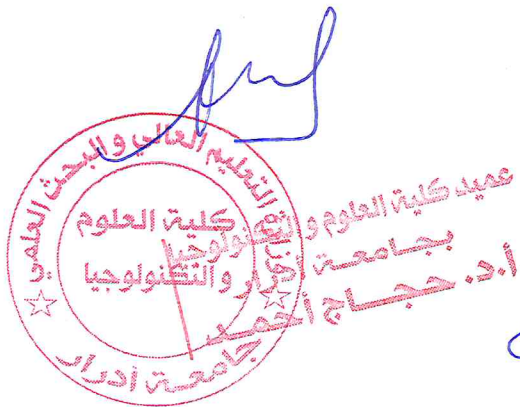 وزارة التعليم العالي والبحث العلمي
كلية العلوم
والتكنولوجيا
جامعة أدرار
عميد كلية العلوم والتكنولوجيا
بجامعة أدرار
أ.د. حجاج أحمد